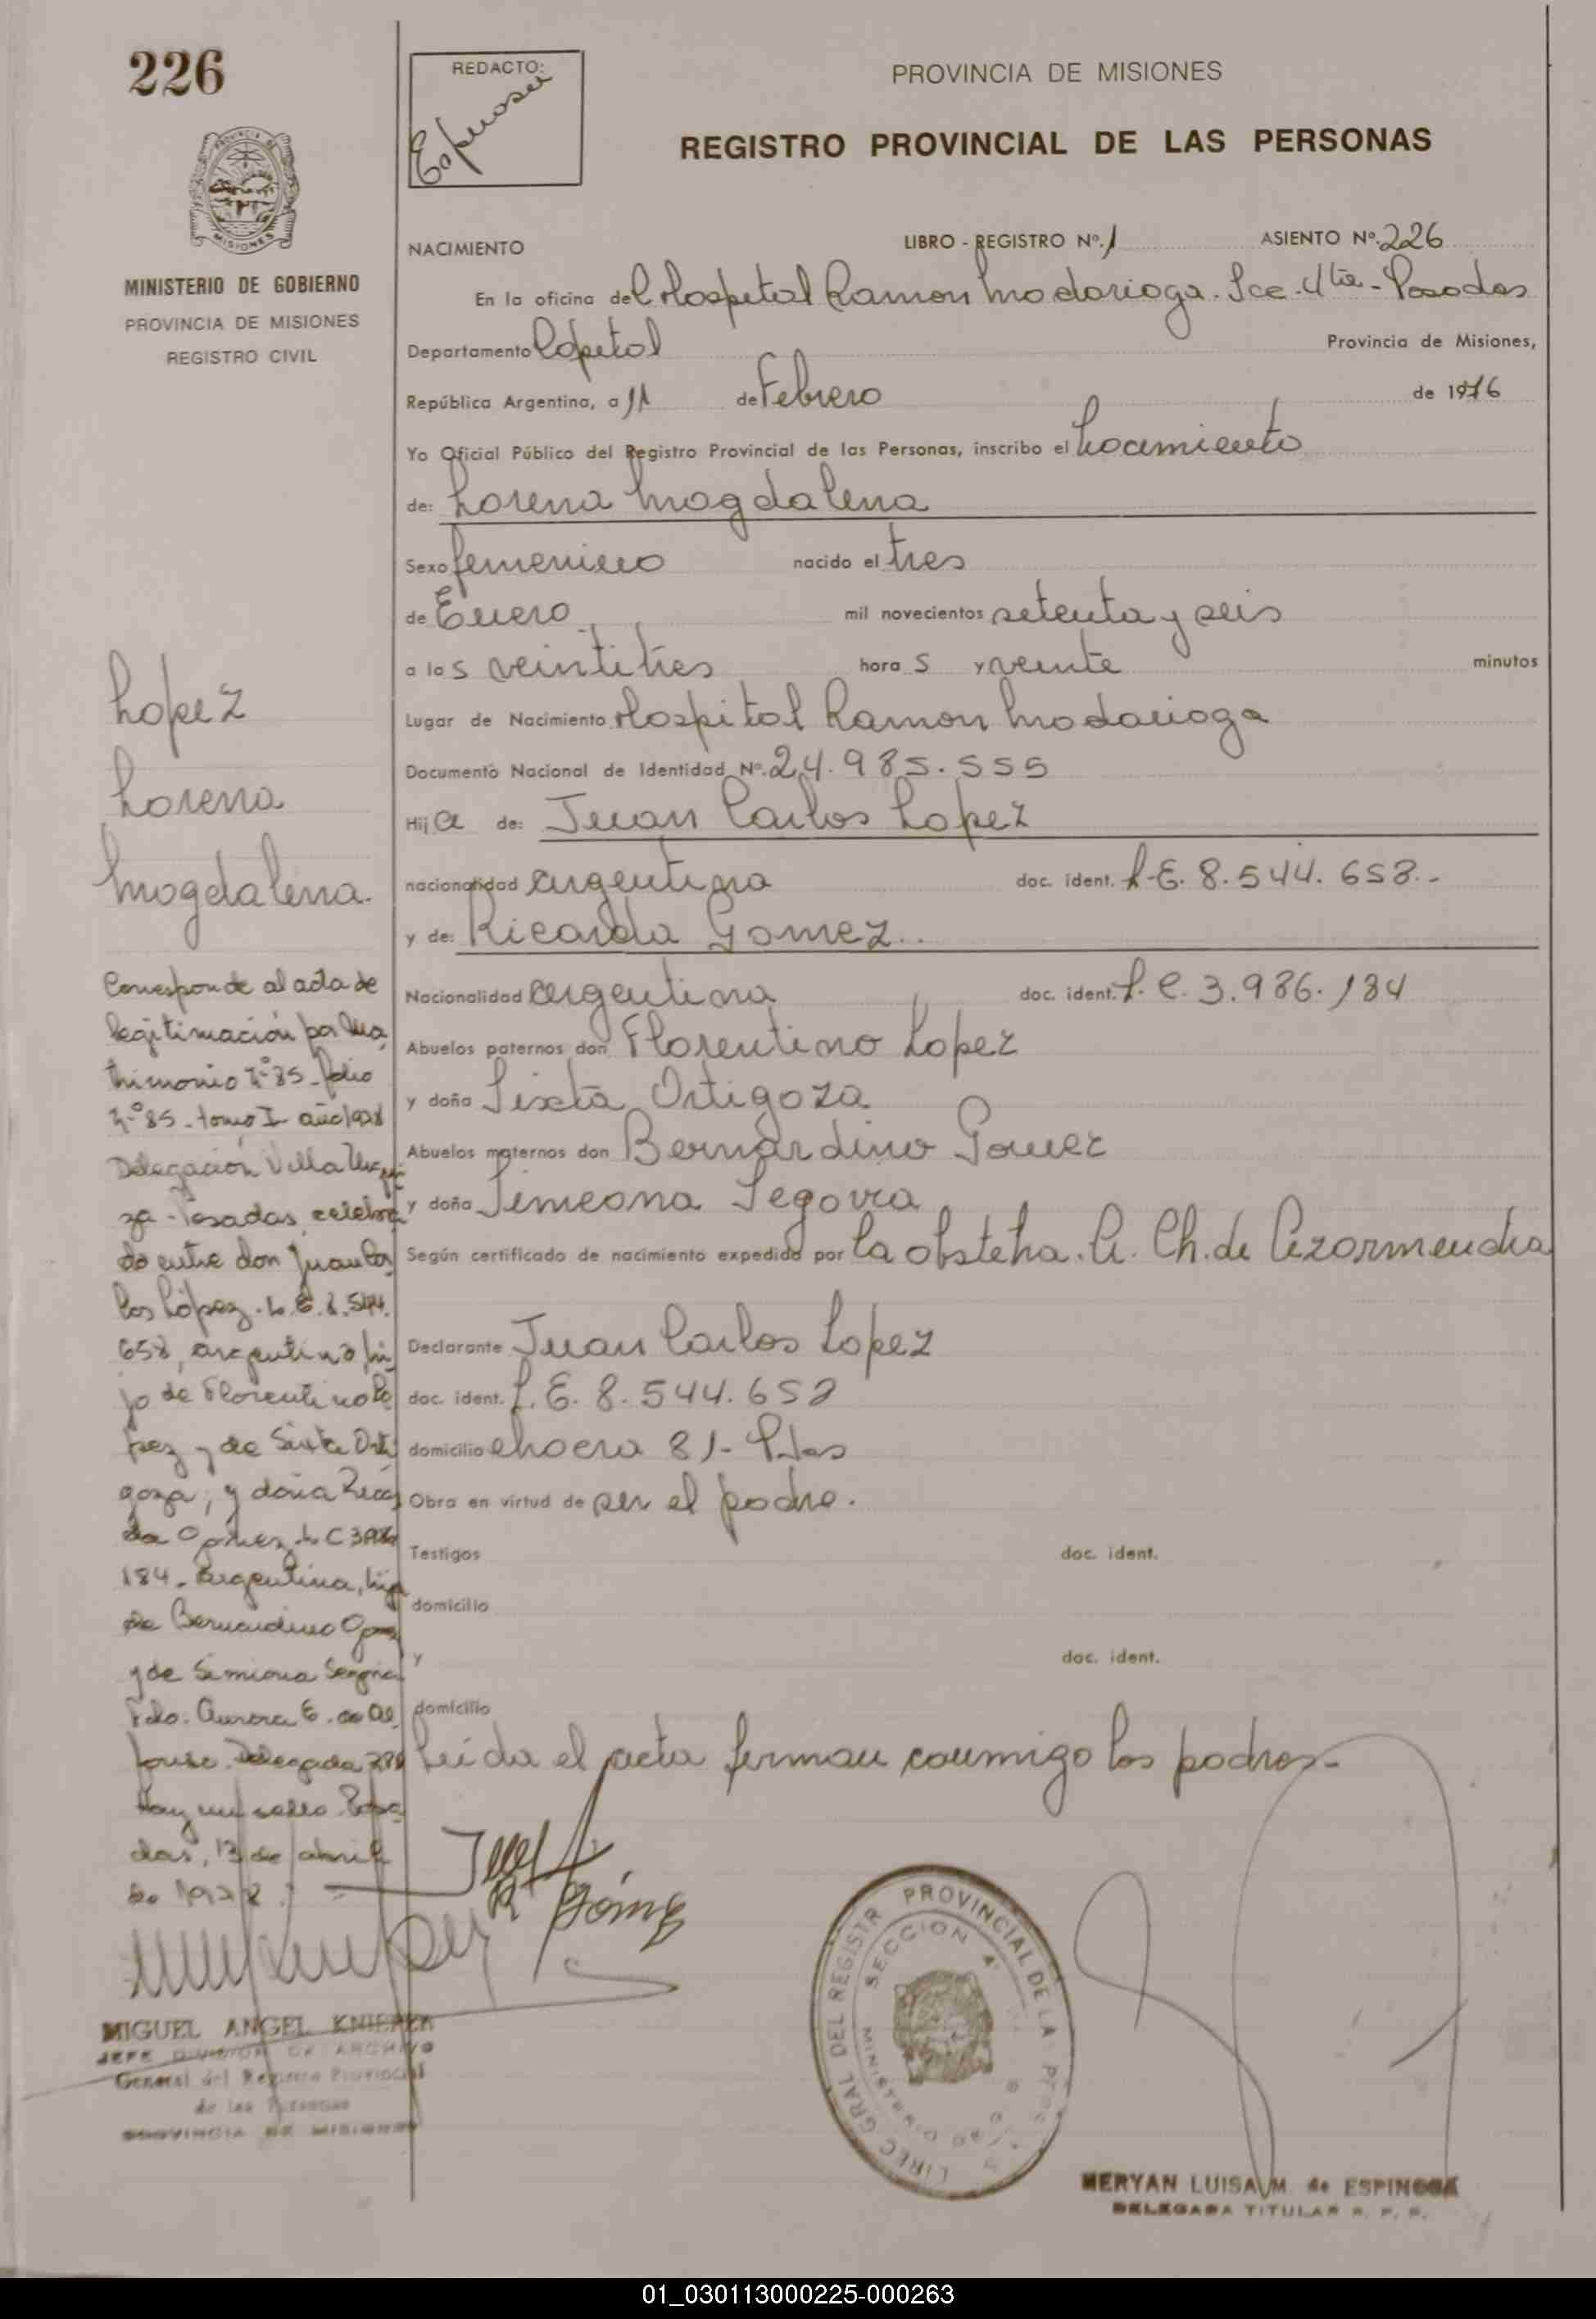 226
REDACTO:
Espinosa
PROVINCIA DE MISIONES
REGISTRO PROVINCIAL DE LAS PERSONAS
PROVINCIA DE
MISIONES
MINISTERIO DE GOBIERNO
PROVINCIA DE MISIONES
REGISTRO CIVIL
NACIMIENTO LIBRO - REGISTRO Nº. 1 ASIENTO Nº. 226
En la oficina del Hospital Ramon Madariaga. Scc. 4ta - Posadas
Departamento Capital Provincia de Misiones,
República Argentina, a 11 de Febrero de 1976
Yo Oficial Público del Registro Provincial de las Personas, inscribo el nacimiento
de: Lorena Magdalena
Sexo femenino nacido el tres
de Enero mil novecientos setenta y seis
a las veintitres horas y veinte minutos
Lugar de Nacimiento Hospital Ramon Madariaga
Documento Nacional de Identidad Nº. 24.985.555
Hija de: Juan Carlos Lopez
nacionalidad argentina doc. ident. L.E. 8.544.658.-
y de: Ricarda Gomez..
Nacionalidad argentina doc. ident. L.C. 3.986.184
Abuelos paternos don Florentino Lopez
y doña Sixta Ortigoza
Abuelos maternos don Bernardino Gomez
y doña Simeona Segovia
Según certificado de nacimiento expedido por la obstetra. A. Ch. de Azormendia
Declarante Juan Carlos Lopez
doc. ident. L.E. 8.544.658
domicilio chacra 81- Pdas
Obra en virtud de ser el padre.
Testigos doc. ident.
domicilio
y doc. ident.
domicilio
Leida el acta firman conmigo los padres.-
Lopez
Lorena
Magdalena.
Corresponde al acta de
legitimación por ma
trimonio Nº 85 - folio
Nº 85 - tomo I año 1978
Delegación Villa Urqui
za - Posadas, celebra
do entre don Juan Car
los López. L.E. 8.544.
658, argentino hi
jo de Florentino Lo
pez y de Sixta Orti
goza; y doña Ricar
da Gomez L C 3.986
184 - argentina, hija
de Bernardino Gomez
y de Simiona Segovia
Fdo. Aurora E. de
Delegada
Hay un sello. Posa
das, 13 de abril
de 1978.
R Gómez
MIGUEL ANGEL KNIEPER
JEFE DIVISION DE ARCHIVO
General del Registro Provincial
de las Personas
PROVINCIA DE MISIONES
DIREC GRAL DEL REGISTR PROVINCIAL DE LAS PERS
SECCION 4ª
MERYAN LUISA M. de ESPINOSA
DELEGADA TITULAR R. P. P.
01_030113000225-000263